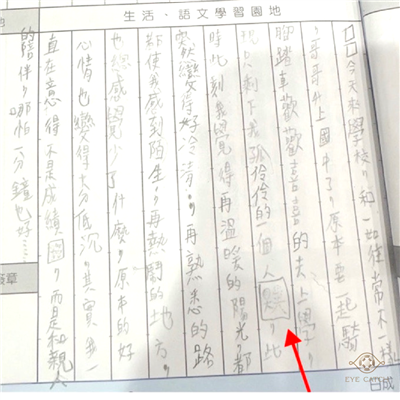 生活・語文學習園地
□□今天來學校,和一如往常不一樣,
哥哥升上國中了,原本要一起騎
腳踏車歡歡喜喜的去上學,
現只剩下我孤伶伶的一個人,此
時此刻我覺得再溫暖的陽光,都
變得好冷清,再熟悉的路
都使我感到陌生,再熱鬧的地方,
也感覺少了什麼,原本的好
心情也變得十分低沉,其實我一
直在意得不是成績,而是和親人
的陪伴,哪怕一分鐘也好……
EYE CATCH